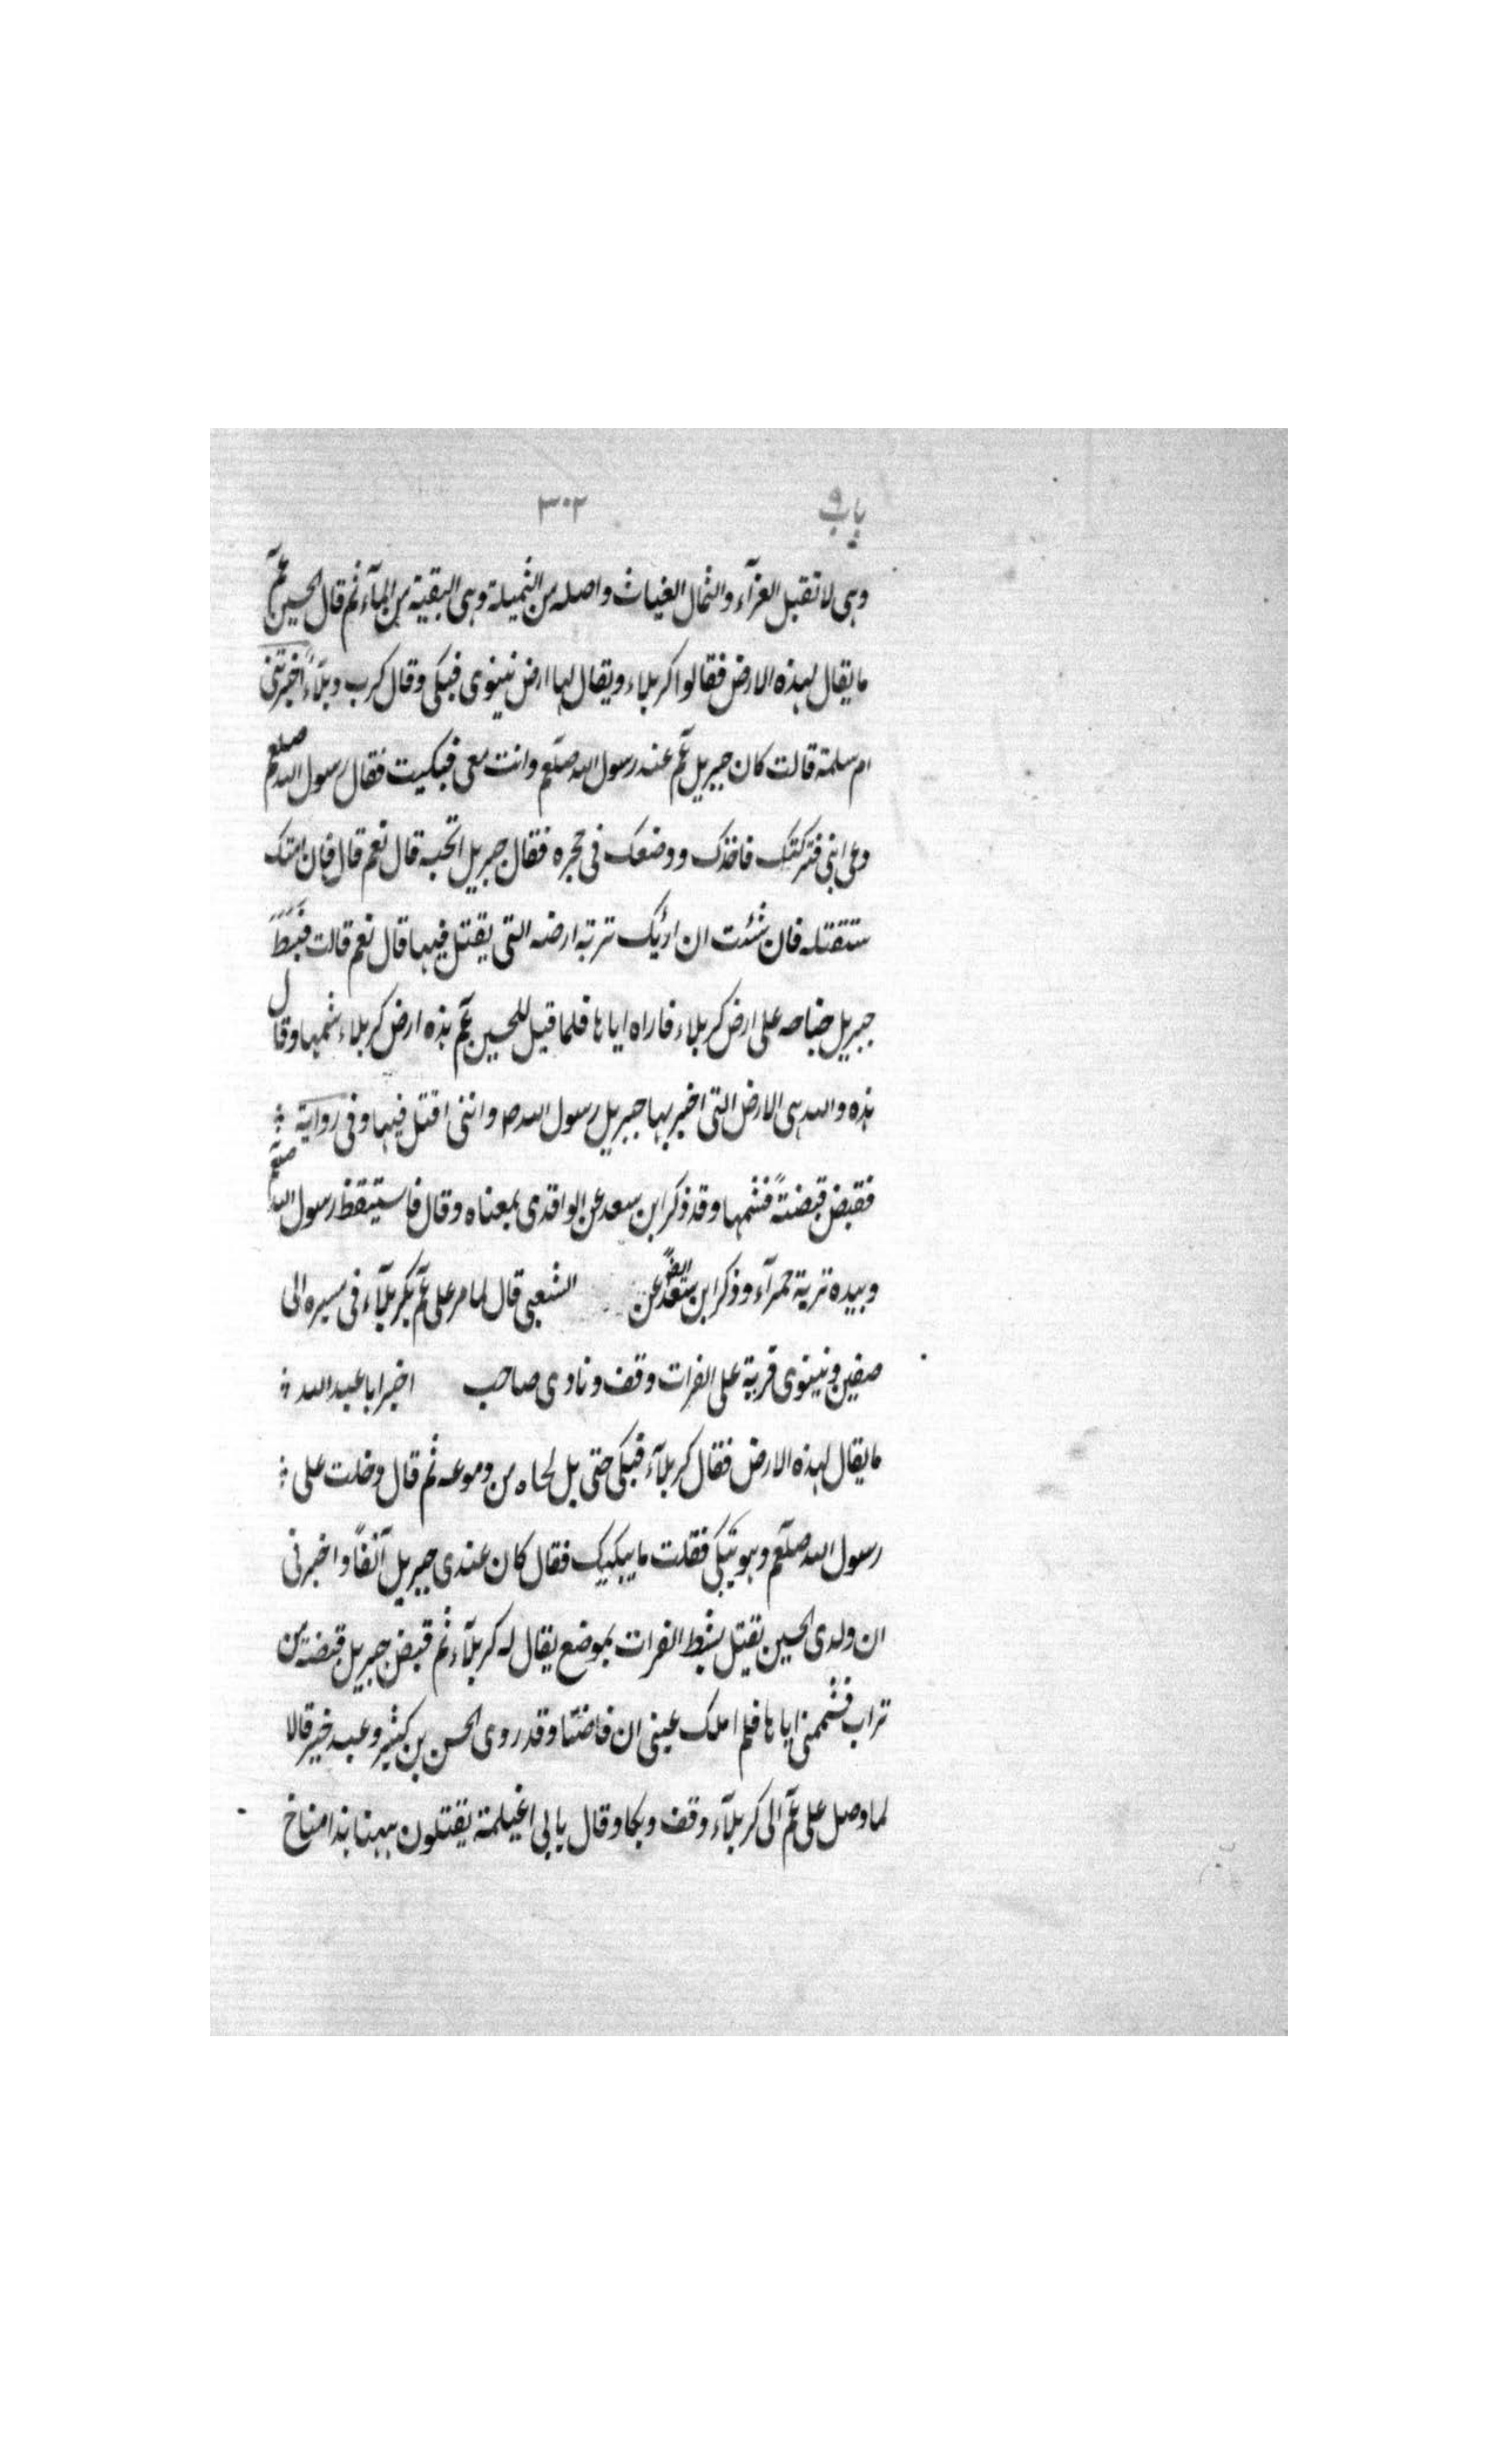 باب ٩ ٣٠٢
وهى لا تقبل العزآء والثمال الغياث واصله من الثميلة وهى البقية من المآء ثم قال الحسين عم
ما يقال لهذه الارض فقالوا كربلاء ويقال لها ارض نينوى فبكى وقال كرب وبلاء اخبرتنى
ام سلمة قالت كان جبريل عم عند رسول الله صلعم وانت معى فبكيت فقال رسول الله صلعم
دعى ابنى فتركتك فاخذك ووضعك فى حجره فقال جبريل اتحبه قال نعم قال فان امتك
ستقتله فان شئت ان اريك تربة ارضه التى يقتل فيها قال نعم قالت فبسط
جبريل جناحه على ارض كربلاء فاراه اياها فلما قيل للحسين عم هذه ارض كربلاء شمها وقال
هذه والله هى الارض التى اخبر بها جبريل رسول الله ص واننى اقتل فيها وفى رواية
فقبض قبضتة فشمها وقد ذكر ابن سعد عن الواقدى بمعناه وقال فاستيقظ رسول الله صلعم
وبيده تربة حمرآء وذكر ابن سعد ايضا عن الشعبى قال لما مر على عم بكربلآء فى مسيره الى
صفين ونينوى قرية على الفرات وقف ونادى صاحب اخبر ابا عبد الله
ما يقال لهذه الارض فقال كربلآء فبكى حتى بل لحاه من دموعه ثم قال دخلت على
رسول الله صلعم وهو يبكى فقلت ما يبكيك فقال كان عندى جبريل آنفا واخبرنى
ان ولدى الحسين يقتل بشط الفرات بموضع يقال له كربلآء ثم قبض جبريل قبضة من
تراب فشممنى اياها فلم املك عينى ان فاضتا وقد روى الحسن بن كثير وعبد خير قالا
لما وصل على عم الى كربلآء وقف وبكا وقال بابى اغيلمة يقتلون ههنا هذا مناخ